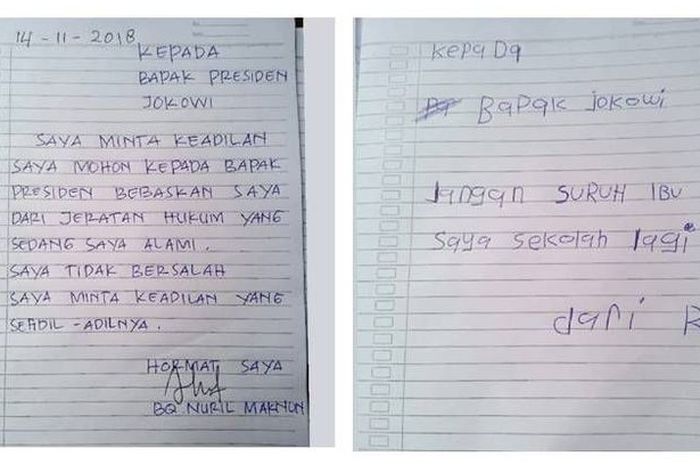 14-11-2018
KEPADA
BAPAK PRESIDEN
JOKOWI
SAYA MINTA KEADILAN
SAYA MOHON KEPADA BAPAK
PRESIDEN BEBASKAN SAYA
DARI JERATAN HUKUM YANG
SEDANG SAYA ALAMI.
SAYA TIDAK BERSALAH
SAYA MINTA KEADILAN YANG
SEADIL-ADILNYA.
HORMAT SAYA
BQ NURIL MAKNUN
kepada
Bapak jokowi
Jangan SURUH IBU
saya sekolah lagi
dari R